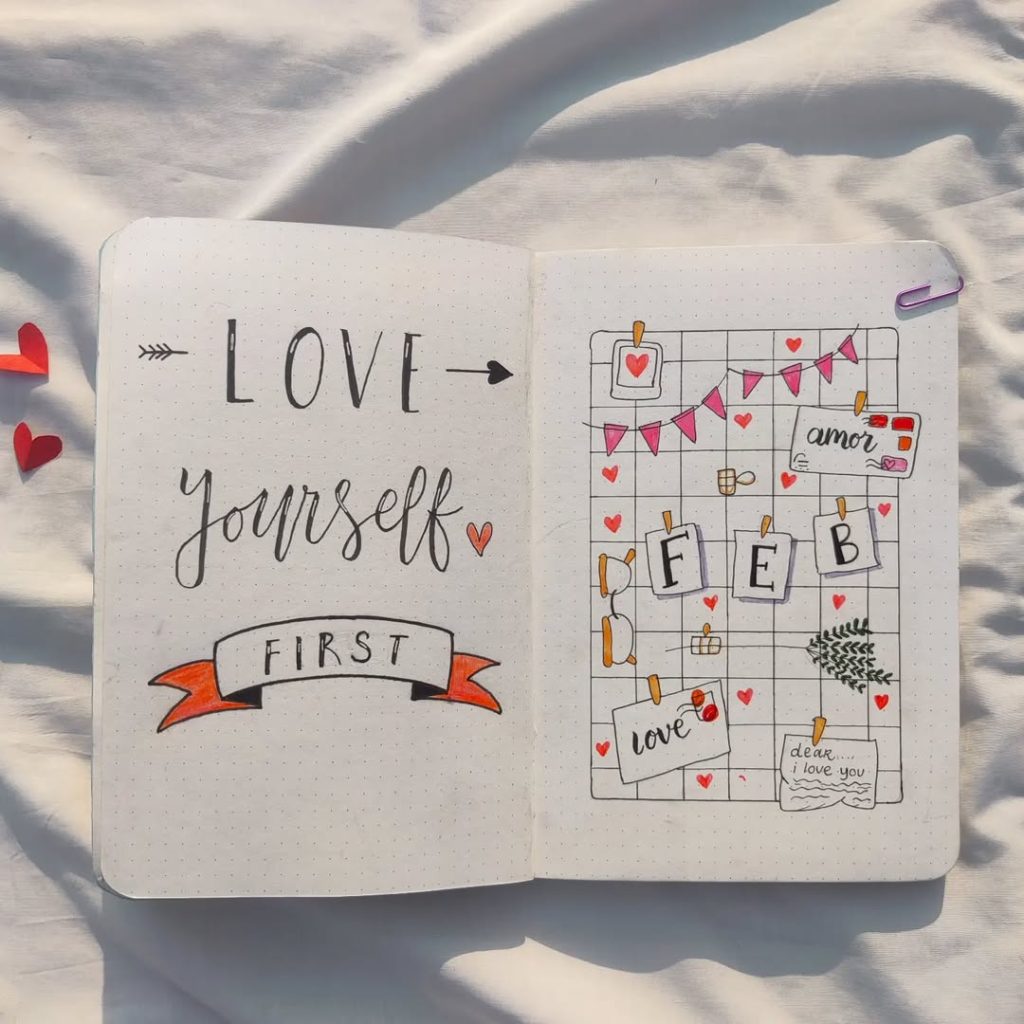 LOVE
Yourself
FIRST
amor
F E B
love
dear....
i love you